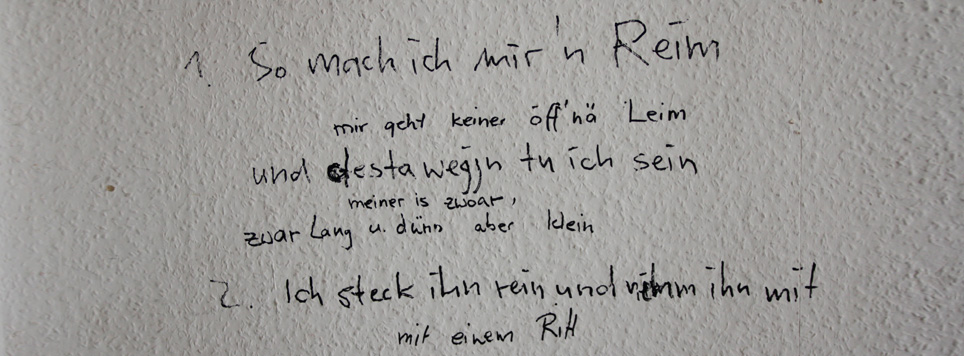 1. So mach ich mir'n Reim
mir geht keiner öff'nä Leim
und desta wegjn tu ich sein
meiner is zwoar,
zwar Lang u. dünn aber klein
2. Ich steck ihn rein und nimm ihn mit
mit einem Ritt